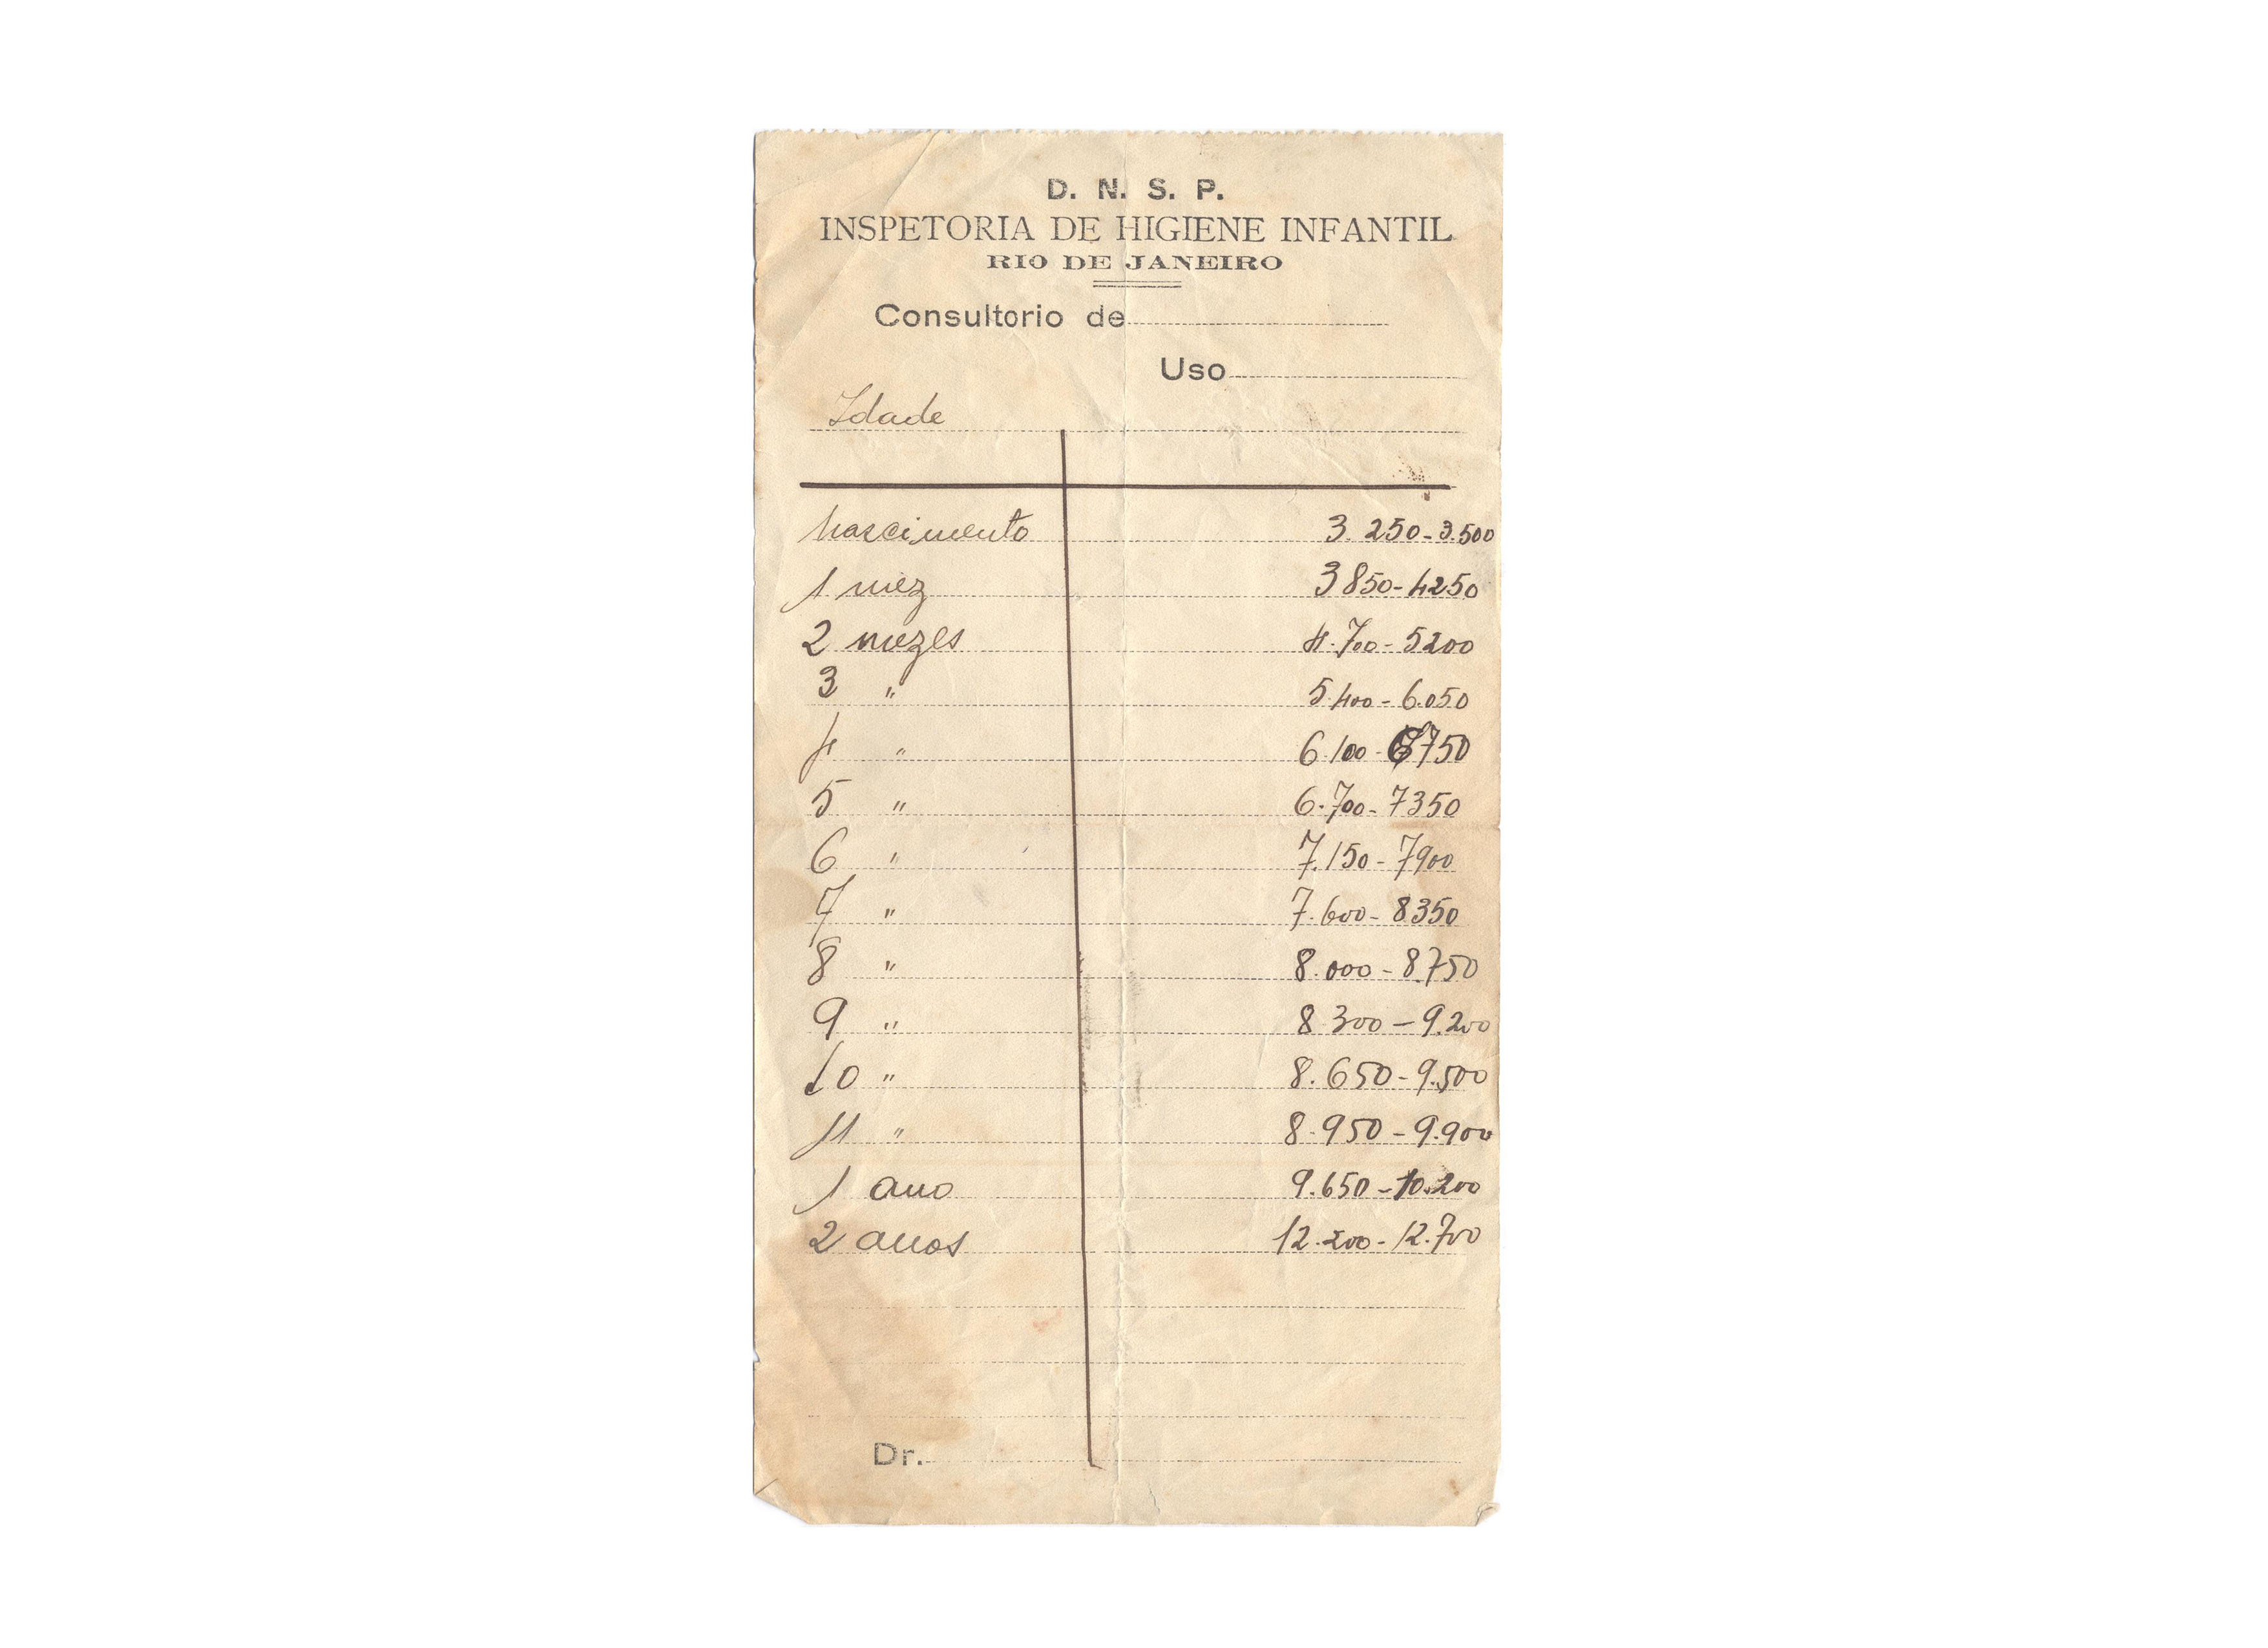 D. N. S. P.
INSPETORIA DE HIGIENE INFANTIL
RIO DE JANEIRO
Consultorio de
Uso
Idade
Nascimento 3.250-3.500
1 mez 3850-4250
2 mezes 4.700-5200
3 " 5.400-6.050
4 " 6.100-6750
5 " 6.700-7350
6 " 7.150-7900
7 " 7.600-8350
8 " 8.000-8.750
9 " 8300-9.200
10 " 8.650-9.500
11 " 8.950-9.900
1 ano 9.650-10.200
2 anos 12.200-12.700
Dr.